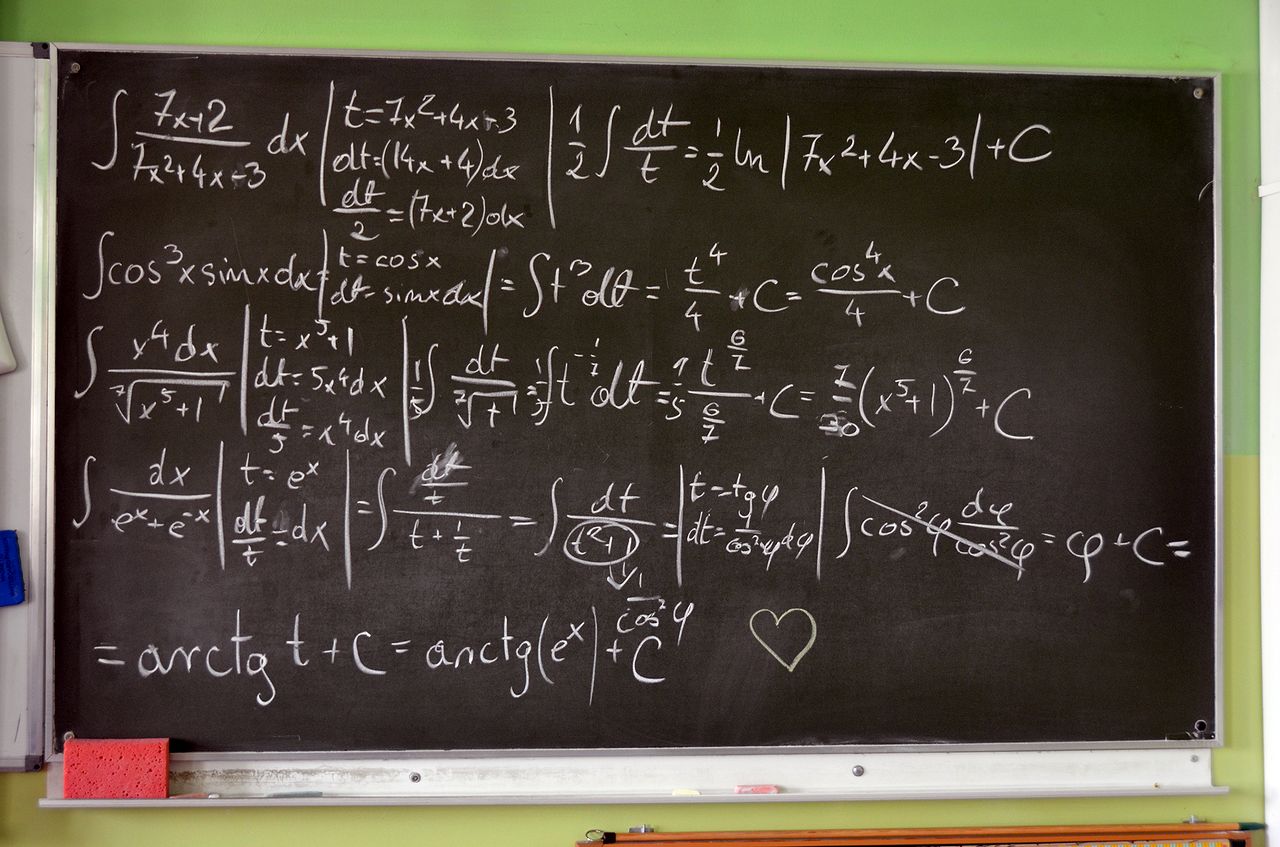 ∫ (7x+2)/(7x²+4x-3) dx | t=7x²+4x-3 dt=(14x+4)dx dt/2=(7x+2)dx | 1/2 ∫ dt/t = 1/2 ln|7x²+4x-3|+C
∫cos³x sinx dx = | t=cosx dt=sinx dx | = ∫t³dt = t⁴/4 +C = cos⁴x/4 +C
∫ x⁴dx/⁷√(x⁵+1) | t=x⁵+1 dt=5x⁴dx dt/5=x⁴dx | 1/5 ∫ dt/⁷√t = 1/5 ∫t^(-1/7) dt = 1/5 t^(6/7)/(6/7) +C = 7/30 (x⁵+1)^(6/7) +C
∫ dx/(eˣ+e⁻ˣ) | t=eˣ dt/t=dx | = ∫ (dt/t)/(t+1/t) = ∫ dt/(t²+1) = | t=tgφ dt=1/cos²φ dφ | ∫cos²φ dφ/cos²φ = φ+C=
1/cos²φ
= arctg t+C = arctg(eˣ)+C